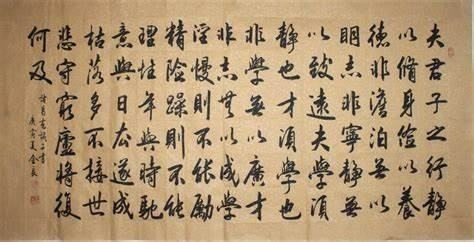 夫君子之行静
以脩身儉以養
德非澹泊無以
明志非寧静無
以致遠夫學須
静也才須學也
非學無以廣才
非志無以成學
淫慢則不能勵
精險躁則不能
理性年與時馳
意與日去遂成
枯落多不接世
悲守窮廬將復
何及
諸葛亮誡子書
庚寅夏